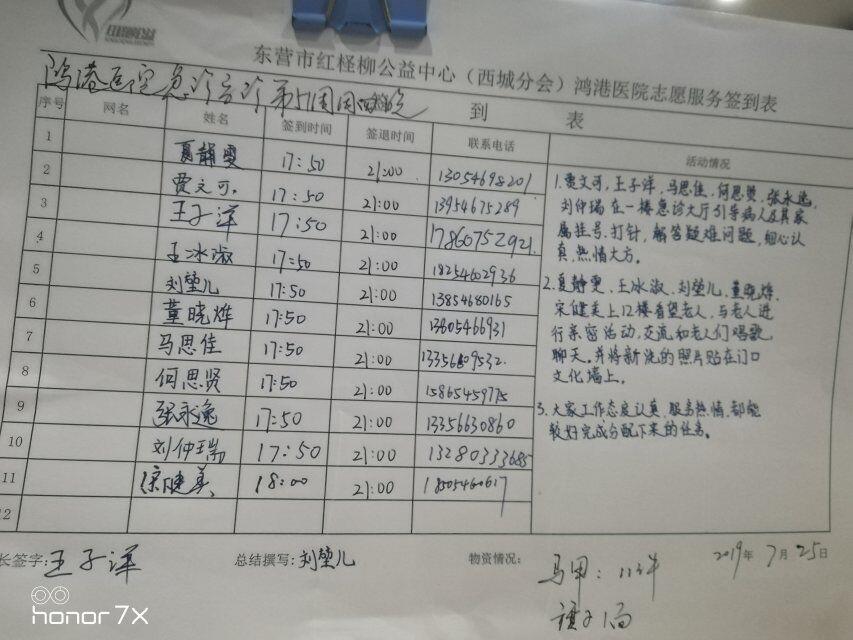 东营市红柽柳公益中心（西城分会）鸿港医院志愿服务签到表
鸿港医院急诊
到 表
序号 网名 姓名 签到时间 签退时间 联系电话 活动情况
1 夏静雯 17:50 21:00 13054698201
2 贾文可 17:50 21:00 13954675289
3 王子洋 17:50 21:00 17860752921
4 王冰淑 17:50 21:00 18254602936
5 刘堃儿 17:50 21:00 13854680165
6 董晓烨 17:50 21:00 13805466931
7 马思佳 17:50 21:00 13356809532
8 何思贤 17:50 21:00 15865459775
9 张永逸 17:50 21:00 13356630860
10 刘仲瑞 17:50 21:00 13280333685
11 健美 18:00 21:00 18505460617
12
1.贾文可,王子洋,马思佳,何思贤,张永逸,
刘仲瑞在一楼急诊大厅引导病人及其家
属挂号,打针,解答疑难问题,细心认
真,热情大方。
2.夏静雯、王冰淑、刘堃儿、董晓烨、
宋健美上12楼看望老人,与老人进
行亲密活动,交流和老人们唱歌,
聊天。并将新洗的照片贴在门口
文化墙上。
3.大家工作态度认真,服务热情,都能
较好完成分配下来的任务。
长签字: 王子洋 总结撰写: 刘堃儿 物资情况: 2019年7月25日
马甲: 11件
honor 7X